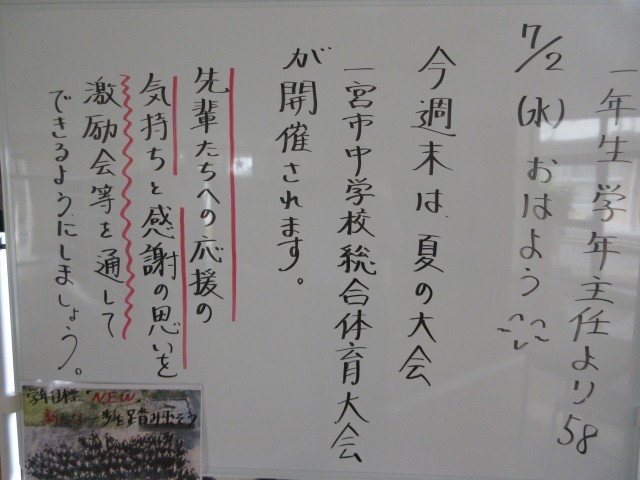 一年生 学年主任より 58
7/2 (水) おはよう
今週末は、夏の大会
一宮市中学校総合体育大会
が開催されます。
先輩たちへの応援の
気持ちと感謝の思いを
激励会等を通して
できるようにしましょう。
学年目標 "NEW"
新たな一歩を踏み出そう